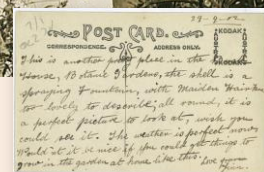 29-9-02
POST CARD.
CORRESPONDENCE. ADDRESS ONLY.
KODAK
KODAK
This is another pretty place in the
House, Botanic Gardens, the shell is a
spraying Fountain, with Maiden Hair
too lovely to describe, all round, it is
a perfect picture to look at, wish you
could see it. The weather is perfect now,
Would'nt it be nice if you could get things to
grow in the garden at home like this. Love